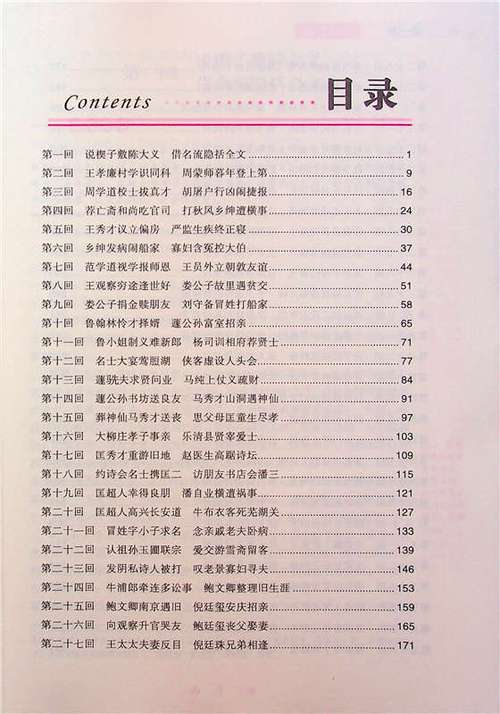 Contents 目录
第一回 说楔子敷陈大义 借名流隐括全文 1
第二回 王孝廉村学识同科 周蒙师暮年登上第 9
第三回 周学道校士拔真才 胡屠户行凶闹捷报 16
第四回 荐亡斋和尚吃官司 打秋风乡绅遭横事 24
第五回 王秀才议立偏房 严监生疾终正寝 30
第六回 乡绅发病闹船家 寡妇含冤控大伯 37
第七回 范学道视学报师恩 王员外立朝敦友谊 44
第八回 王观察穷途逢世好 娄公子故里遇贫交 51
第九回 娄公子捐金赎朋友 刘守备冒姓打船家 58
第十回 鲁翰林怜才择婿 蘧公孙富室招亲 65
第十一回 鲁小姐制义难新郎 杨司训相府荐贤士 71
第十二回 名士大宴莺脰湖 侠客虚设人头会 77
第十三回 蘧駪夫求贤问业 马纯上仗义疏财 84
第十四回 蘧公孙书坊送良友 马秀才山洞遇神仙 91
第十五回 葬神仙马秀才送丧 思父母匡童生尽孝 97
第十六回 大柳庄孝子事亲 乐清县贤宰爱士 103
第十七回 匡秀才重游旧地 赵医生高踞诗坛 109
第十八回 约诗会名士携匡二 访朋友书店会潘三 115
第十九回 匡超人幸得良朋 潘自业横遭祸事 121
第二十回 匡超人高兴长安道 牛布衣客死芜湖关 127
第二十一回 冒姓字小子求名 念亲戚老夫卧病 133
第二十二回 认祖孙玉圃联宗 爱交游雪斋留客 139
第二十三回 发阴私诗人被打 叹老景寡妇寻夫 146
第二十四回 牛浦郎牵连多讼事 鲍文卿整理旧生涯 153
第二十五回 鲍文卿南京遇旧 倪廷玺安庆招亲 159
第二十六回 向观察升官哭友 鲍廷玺丧父娶妻 165
第二十七回 王太太夫妻反目 倪廷珠兄弟相逢 171